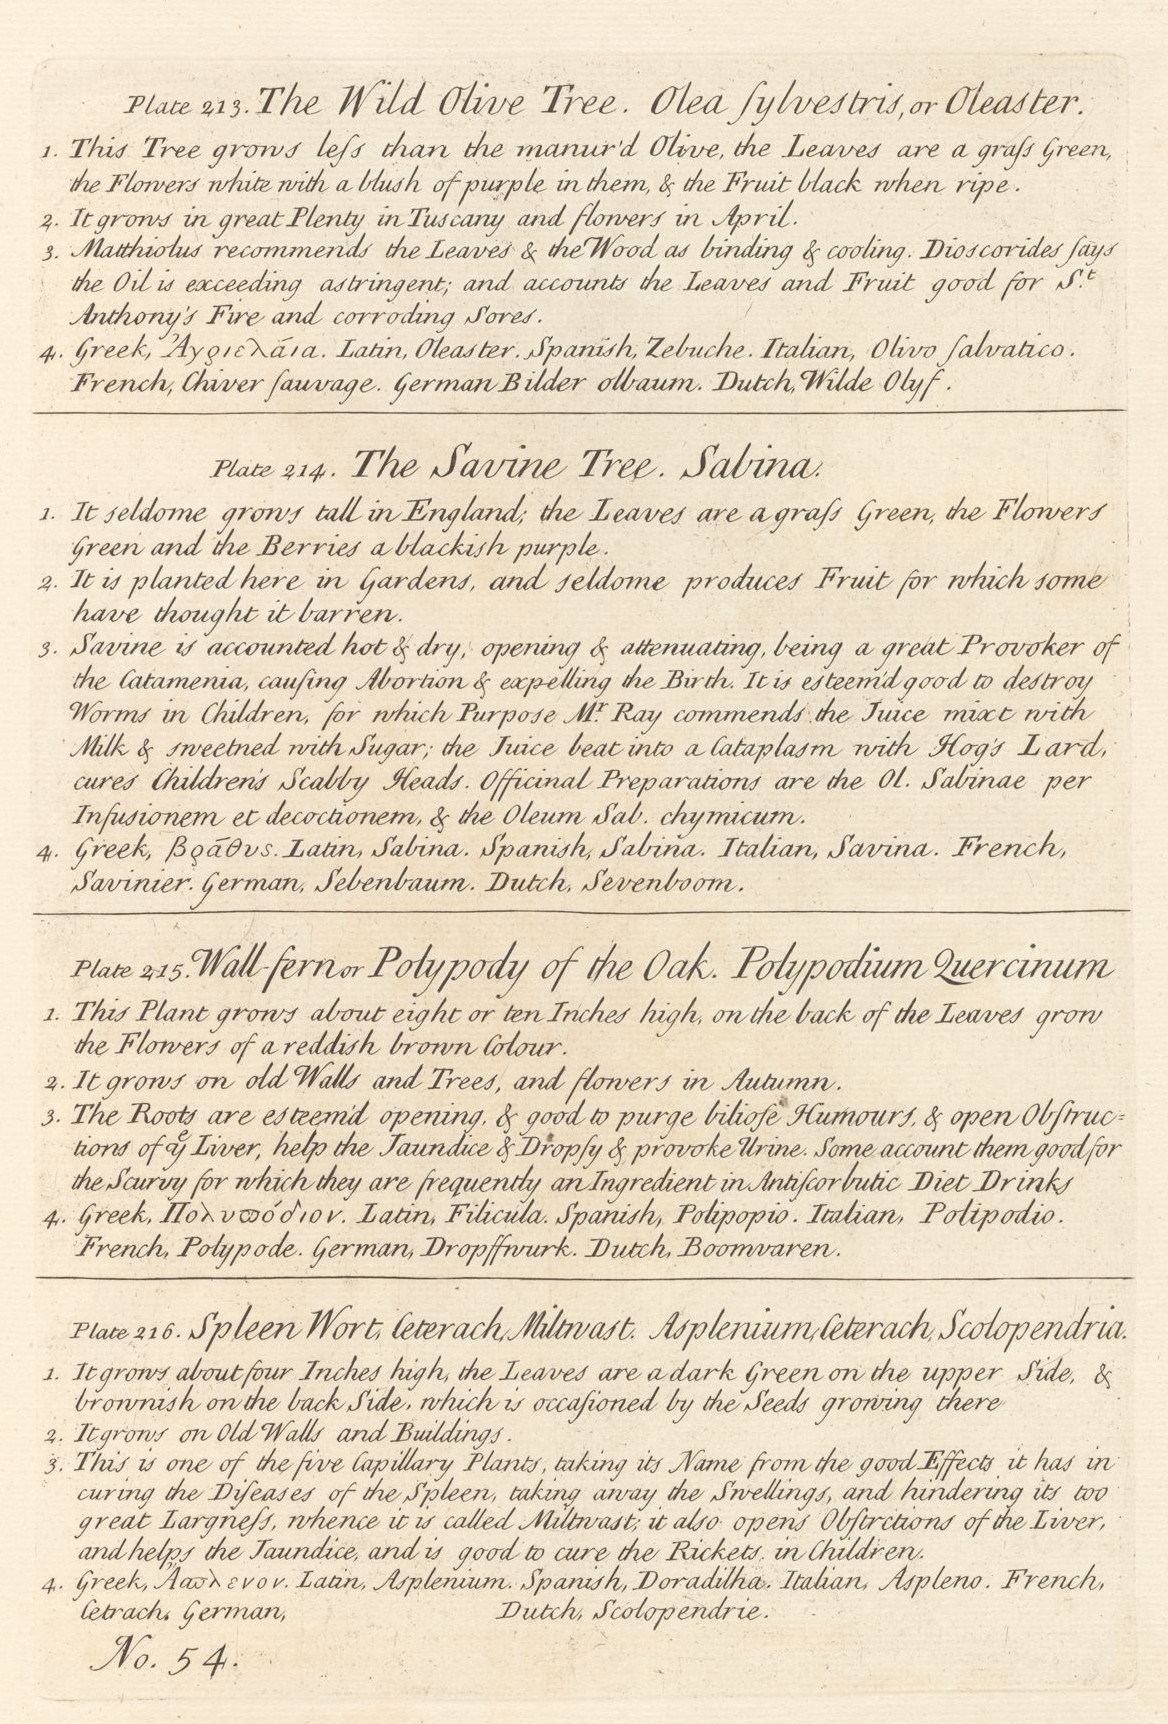 Plate 213. The Wild Olive Tree. Olea ſylvestris, or Oleaster.
1. This Tree grows leſs than the manur'd Olive, the Leaves are a graſs Green,
the Flowers white with a blush of purple in them, & the Fruit black when ripe.
2. It grows in great Plenty in Tuscany and flowers in April.
3. Matthiolus recommends the Leaves & the Wood as binding & cooling. Dioscorides ſays
the Oil is exceeding astringent; and accounts the Leaves and Fruit good for St.
Anthony's Fire and corroding Sores.
4. Greek, Ἀγριελάια. Latin, Oleaster. Spanish, Zebuche. Italian, Olivo ſalvatico.
French, Chiver ſauvage. German Bilder olbaum. Dutch, Wilde Olyf.
Plate 214. The Savine Tree. Sabina.
1. It seldome grows tall in England; the Leaves are a graſs Green, the Flowers
Green and the Berries a blackish purple.
2. It is planted here in Gardens, and seldome produces Fruit for which some
have thought it barren.
3. Savine is accounted hot & dry, opening & attenuating, being a great Provoker of
the Catamenia, cauſing Abortion & expelling the Birth. It is esteem'd good to destroy
Worms in Children, for which Purpose Mr. Ray commends the Juice mixt with
Milk & sweetned with Sugar; the Juice beat into a Cataplasm with Hog's Lard,
cures Children's Scabby Heads. Officinal Preparations are the Ol. Sabinae per
Infusionem et decoctionem, & the Oleum Sab. chymicum.
4. Greek, βράθυς. Latin, Sabina. Spanish, Sabina. Italian, Savina. French,
Savinier. German, Sebenbaum. Dutch, Sevenboom.
Plate 215. Wall-fern or Polypody of the Oak. Polypodium Quercinum
1. This Plant grows about eight or ten Inches high, on the back of the Leaves grow
the Flowers of a reddish brown Colour.
2. It grows on old Walls and Trees, and flowers in Autumn.
3. The Roots are esteem'd opening, & good to purge bilioſe Humours, & open Obſtruc=
tions of ye Liver, help the Jaundice & Dropſy & provoke Urine. Some account them good for
the Scurvy for which they are frequently an Ingredient in Antiſcorbutic Diet Drinks
4. Greek, Πολυϖόδιον. Latin, Filicula. Spanish, Polipopio. Italian, Polipodio.
French, Polypode. German, Dropffwurk. Dutch, Boomvaren.
Plate 216. Spleen Wort, Ceterach, Miltwast. Asplenium, Ceterach, Scolopendria.
1. It grows about four Inches high, the Leaves are a dark Green on the upper Side, &
brownish on the back Side, which is occaſioned by the Seeds growing there
2. It grows on Old Walls and Buildings.
3. This is one of the five Capillary Plants, taking its Name from the good Effects it has in
curing the Diſeases of the Spleen, taking away the Swellings, and hindering its too
great Largneſs, whence it is called Miltwast; it also opens Obſtrctions of the Liver,
and helps the Jaundice, and is good to cure the Rickets in Children.
4. Greek, Ἄσϖλενον. Latin, Asplenium. Spanish, Doradilha. Italian, Aspleno. French,
Cetrach. German, Dutch, Scolopendrie.
No. 54.